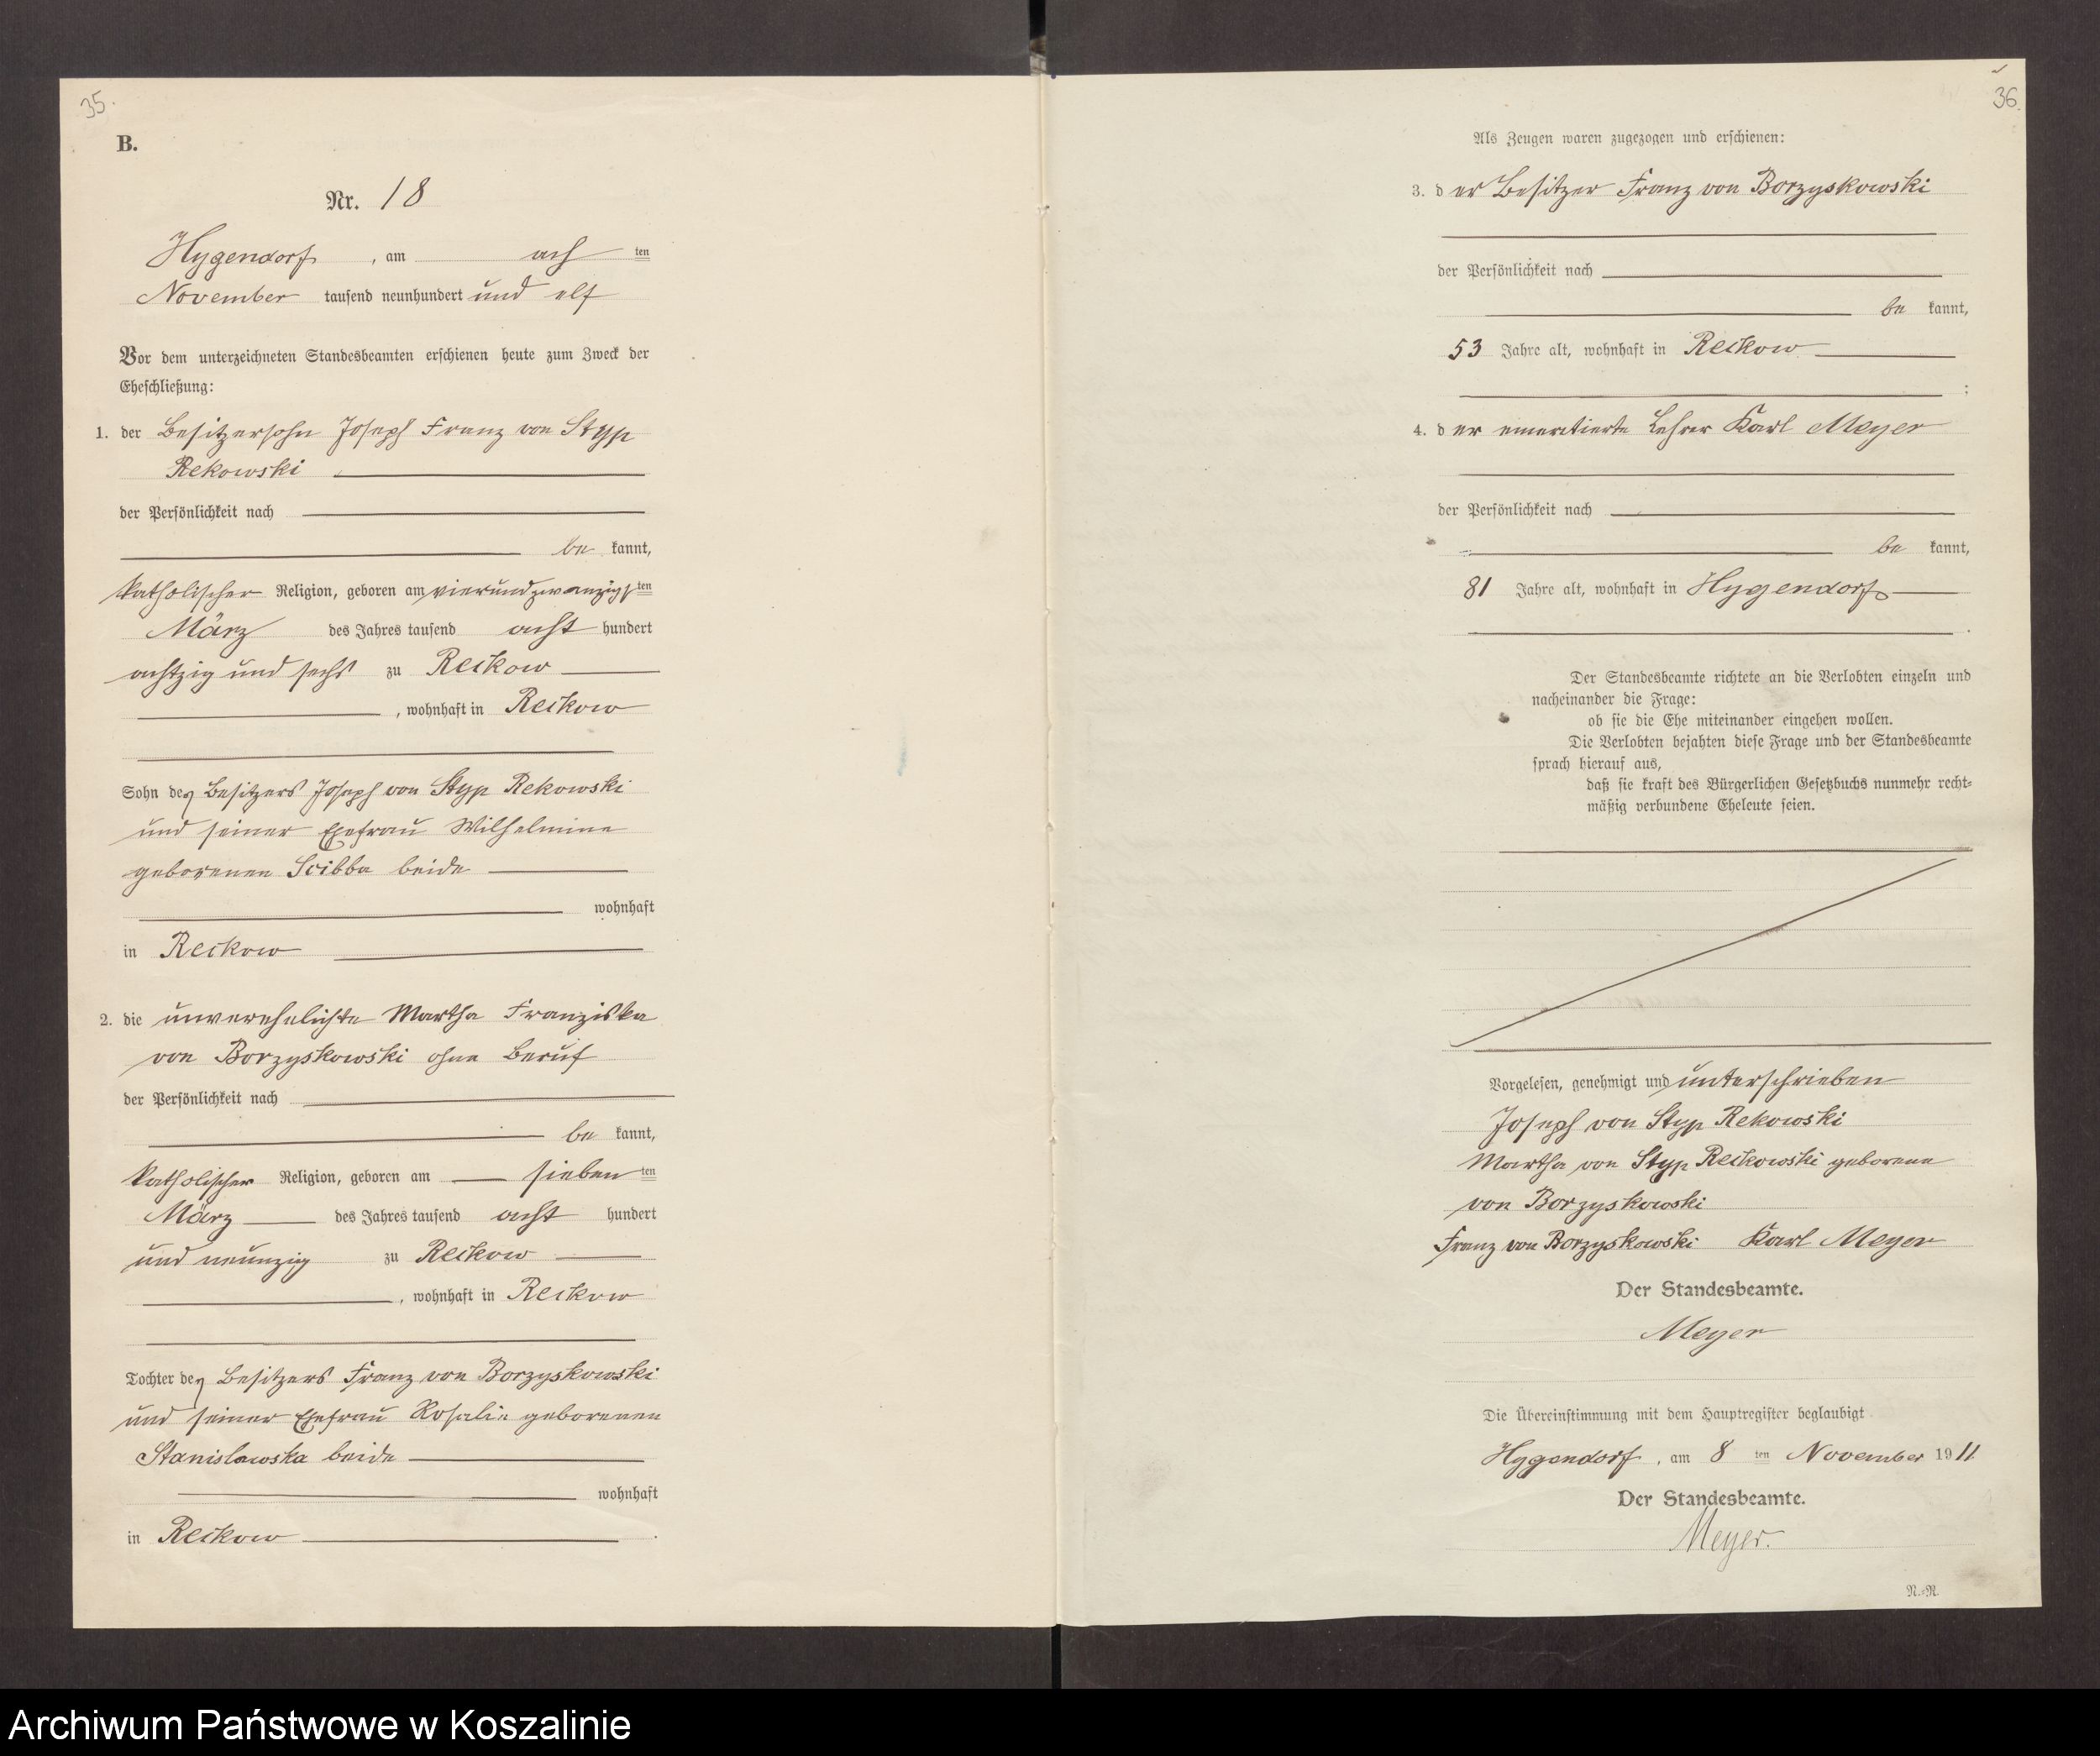 35.
B.
Nr. 18
Hygendorf, am ach ten
November tausend neunhundert und elf
Vor dem unterzeichneten Standesbeamten erschienen heute zum Zweck der
Eheschließung:
1. der Besitzersohn Joseph Franz von Styp
Rekowski
der Persönlichkeit nach
be kannt,
katholischer Religion, geboren am vierundzwanzigsten
März des Jahres tausend acht hundert
achtzig und sechs zu Reckow
, wohnhaft in Reckow
Sohn des Besitzers Joseph von Styp Rekowski
und seiner Ehefrau Wilhelmine
geborenen Scibba beide
wohnhaft
in Reckow
2. die unverehelichte Martha Franziska
von Borzyskowski ohne Beruf
der Persönlichkeit nach
be kannt,
katholischer Religion, geboren am sieben ten
März des Jahres tausend acht hundert
und neunzig zu Reckow
, wohnhaft in Reckow
Tochter des Besitzers Franz von Borzyskowski
und seiner Ehefrau Rosalie geborenen
Stanislawska beide
wohnhaft
in Reckow.
36.
Als Zeugen waren zugezogen und erschienen:
3. der Besitzer Franz von Borzyskowski
der Persönlichkeit nach
be kannt,
53 Jahre alt, wohnhaft in Reckow
;
4. der emeritierte Lehrer Karl Meyer
der Persönlichkeit nach
be kannt,
81 Jahre alt, wohnhaft in Hygendorf
.
Der Standesbeamte richtete an die Verlobten einzeln und
nacheinander die Frage:
ob sie die Ehe miteinander eingehen wollen.
Die Verlobten bejahten diese Frage und der Standesbeamte
sprach hierauf aus,
daß sie kraft des Bürgerlichen Gesetzbuchs nunmehr recht=
mäßig verbundene Eheleute seien.
Vorgelesen, genehmigt und unterschrieben
Joseph von Styp Rekowski
Martha von Styp Reckowski geborene
von Borzyskowski
Franz von Borzyskowski Karl Meyer
Der Standesbeamte.
Meyer
Die Übereinstimmung mit dem Hauptregister beglaubigt
Hygendorf, am 8 ten November 1911
Der Standesbeamte.
Meyer.
N.=R.
Archiwum Państwowe w Koszalinie